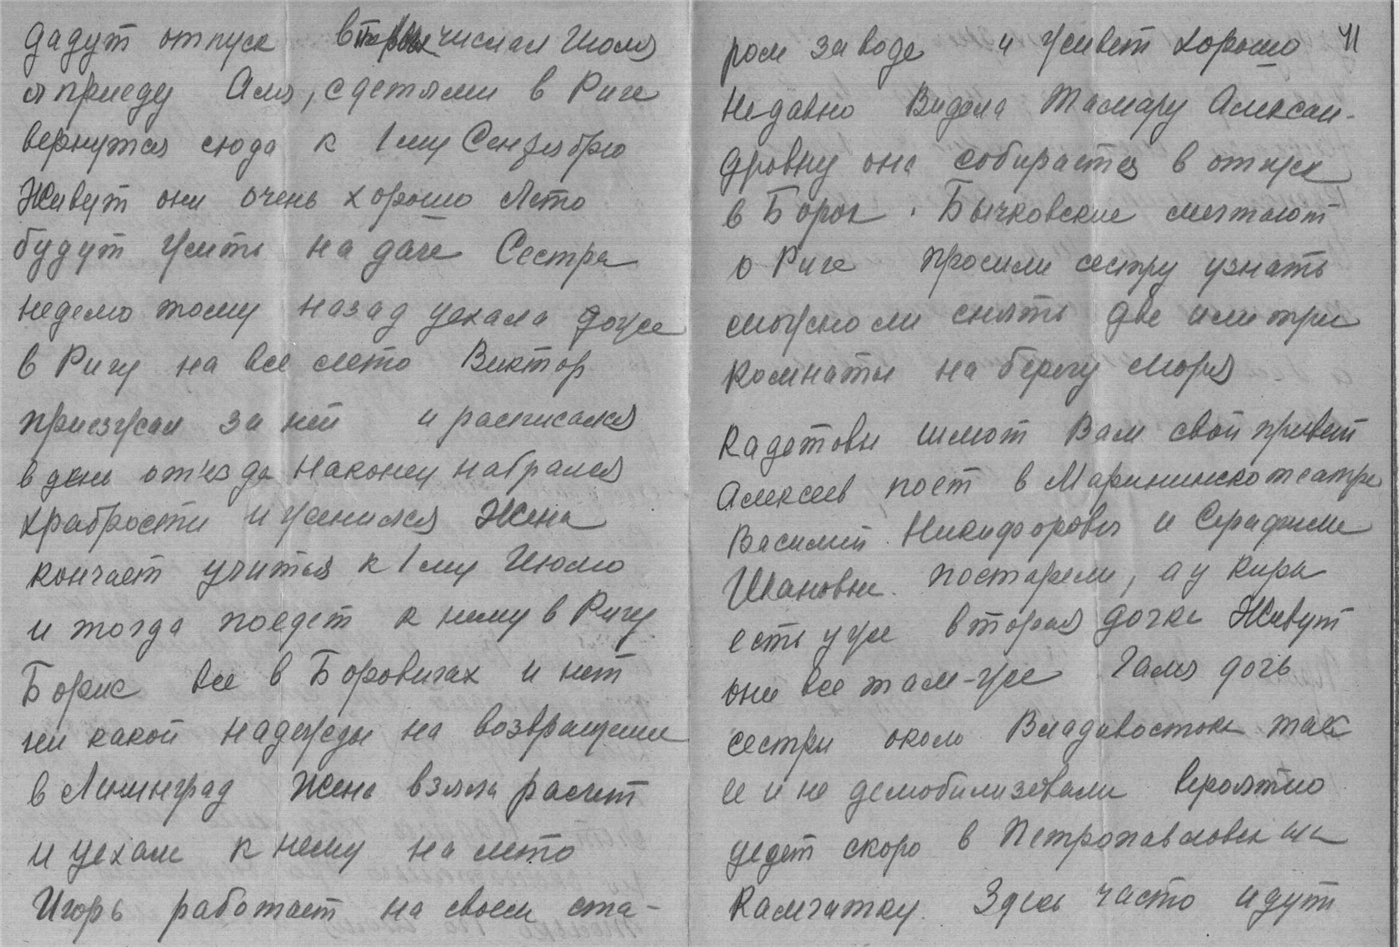 дадут отпуск в числах Июля
я приеду Аля, с детьми в Риге
вернутся сюда к 1му Сентября
Живут они очень хорошо Лето
будут жить на даче Сестра
неделю тому назад уехала тоже
в Ригу на все лето Виктор
приезжал за ней и расписался
в день от'езда Наконец набрался
храбрости и женился Жена
кончает учиться к 1му Июлю
и тогда поедет к нему в Ригу
Борис все в Боровичах и нет
ни какой надежды на возвращение
в Ленинград Жена взяла расчет
и уехала к нему на лето
Игорь работает на своем ста-
41
ром заводе и живет хорошо
Недавно Видела Тамару Алексан-
дровну она собирается в отпуск
в Борок. Бычковские мечтают
о Риге просили сестру узнать
можно ли снять две или три
комнаты на берегу моря
Кадетовы шлют Вам свой привет
Алексеев поет в Марининско театре
Василий Никифорович и Серафима
Ивановна постарели, а у Киры
есть уже вторая дочка Живут
они все там-же Галя дочь
сестры около Владивостока так
ее и не демобилизовали вероятно
уедет скоро в Петропавловск на
Камчатку. Здесь часто идут